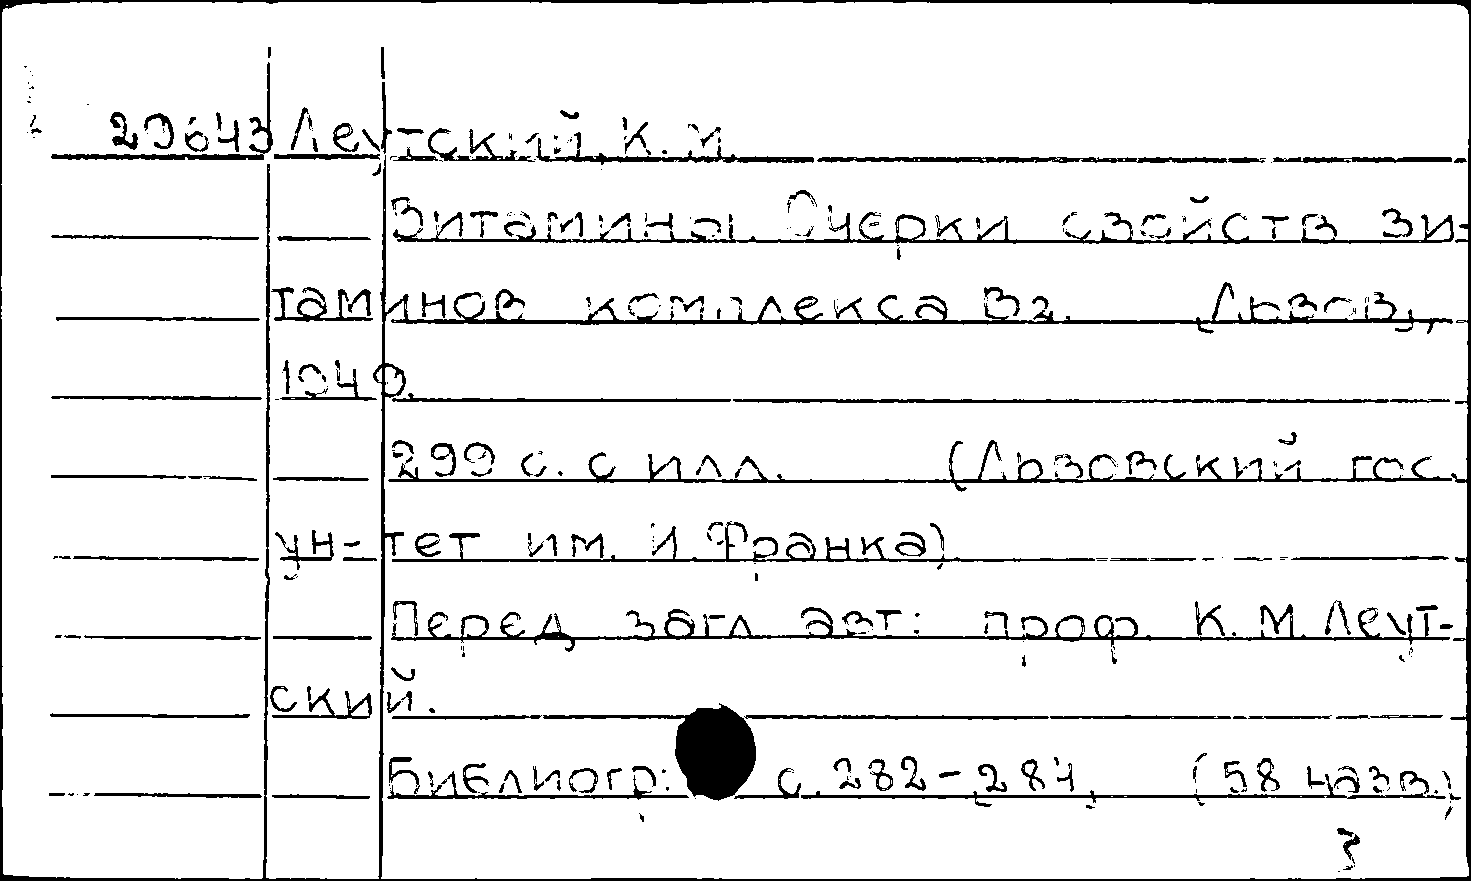 29643 Леутский, К. М.
Витамины. Очерки свойств ви-
таминов комплекса В2. [Львов],
1949.
299 с. с илл. (Львовский гос.
ун-тет им. И. Франка)
Перед загл. авт: проф. К. М. Леут-
ский.
Библиогр: с. 282-[284] (58 назв.)
3